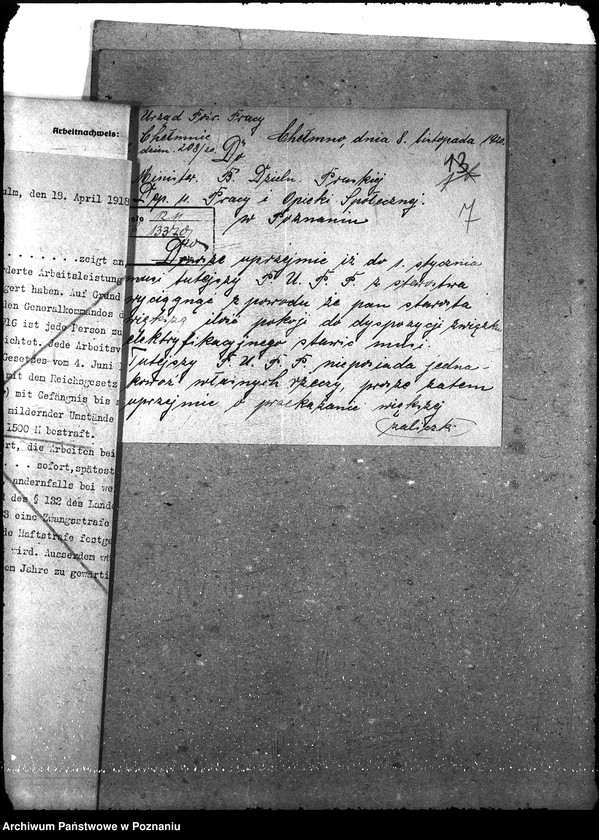 Arbeitnachweis:
ulm, den 18. April 1918
. . . . . . . . . zeigt an
derte Arbeitsleistung
gert haben. Auf Grund
den Generalkommandos d
916 ist jede Person zu
ichtet. Jede Arbeitsv
Gesetzes vom 4. Juni
mit dem Reichsgesetz
) mit Gefängnis bis
mildernder Umstände
1500 M bestraft.
rt, die Arbeiten bei
. . . . sofort, spätest
andernfalls bei we
des § 132 des Lande
3 eine Zwangsstrafe
de Haftstrafe festge
wird. Ausserdem wü
en Jahre zu gewärti
Urząd Pośr. Pracy
Chełmnie
dzien. 208/20.
Chełmno, dnia 8. listopada 1920.
Do
13
Minister. B. Dzieln. Pruskiej
Dep. Pracy i Opieki Społecznej.
w Poznaniu
7
13370
Donoszę uprzejmie iż do 1. stycznia
musi tutejszy P. U. P. P. z starostwa
wyciągnąć z powodu że pan starosta
większą ilość pokoji do dyspozycji związku
elektryfikacyjnego stawić musi.
Tutejszy P. U. P. P. nieposiada jedna-
kowoż własnych rzeczy, proszę zatem
uprzejmie o przekazanie większej
zaliczki.
Archiwum Państwowe w Poznaniu